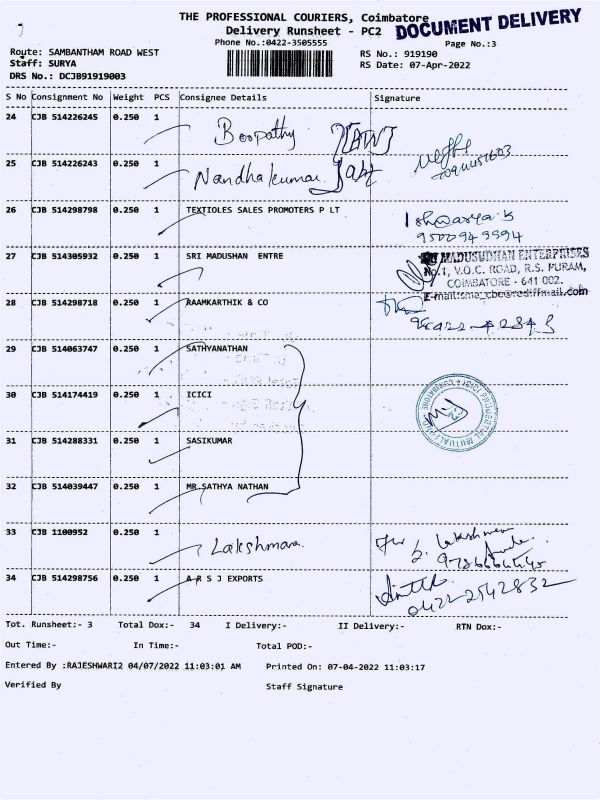 THE PROFESSIONAL COURIERS, Coimbatore
Delivery Runsheet - PC2
DOCUMENT DELIVERY
Phone No.:0422-3505555
Page No.:3
Route: SAMBANTHAM ROAD WEST
RS No.: 919190
Staff: SURYA
RS Date: 07-Apr-2022
DRS No.: DCJB91919003
S No Consignment No Weight PCS Consignee Details Signature
24 CJB 514226245 0.250 1 Boopathy
25 CJB 514226243 0.250 1 Nandhakumar
26 CJB 514298798 0.250 1 TEXTIOLES SALES PROMOTERS P LT Ishwarya.k
9500949994
27 CJB 514305932 0.250 1 SRI MADUSHAN ENTRE
SRI MADUSUDHAN ENTERPRISES
No.1, V.O.C. ROAD, R.S. PURAM,
COIMBATORE - 641 002.
E-mail:sma_cbe@rediffmail.com
28 CJB 514298718 0.250 1 RAAMKARTHIK & CO
29 CJB 514063747 0.250 1 SATHYANATHAN
30 CJB 514174419 0.250 1 ICICI
ICICI PRUDENTIAL MUTUAL FUND
COIMBATORE
31 CJB 514288331 0.250 1 SASIKUMAR
32 CJB 514039447 0.250 1 MR.SATHYA NATHAN
33 CJB 1100952 0.250 1 Lakshmana
34 CJB 514298756 0.250 1 A R S J EXPORTS
0422-2542832
Tot. Runsheet:- 3 Total Dox:- 34 I Delivery:- II Delivery:- RTN Dox:-
Out Time:- In Time:- Total POD:-
Entered By :RAJESHWARI2 04/07/2022 11:03:01 AM Printed On: 07-04-2022 11:03:17
Verified By Staff Signature